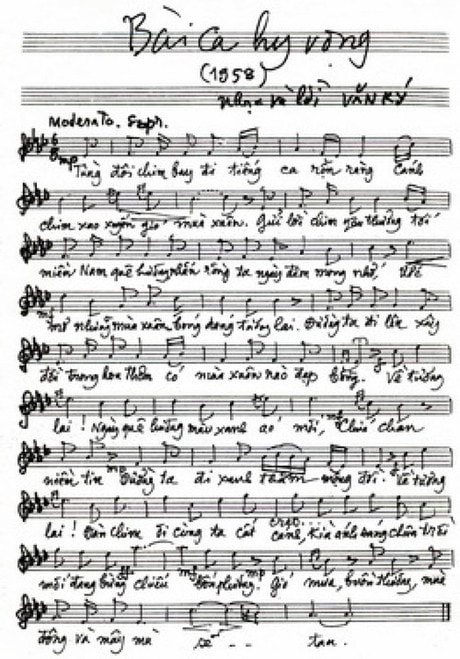 Bài ca hy vọng
(1958)
nhạc và lời VĂN KÝ
Moderato. Espr.
mp
Từng đôi chim bay đi tiếng ca rộn ràng Cánh
chim xao xuyến gió mùa xuân. Gửi lời chim yêu thương tới
miền Nam quê hương nhắn rằng ta ngày đêm mong nhớ, Ước
mf
mơ những mùa xuân bóng dáng tương lai. Đường ta đi lên xây
đời trong hoa thơm có mùa xuân nào đẹp bằng. Về tương
lai! Ngày quê hương màu xanh áo mới, Chứa chan
niềm tin Đường ta đi xanh thắm mộng đời. Về tương
lai! Đàn chim ơi cùng ta cất cánh, Kìa ánh sáng chân trời
mp
mới đang bừng chiếu Gió mưa, buồn thương, mùa
đông và mây mù sẽ - - tan.